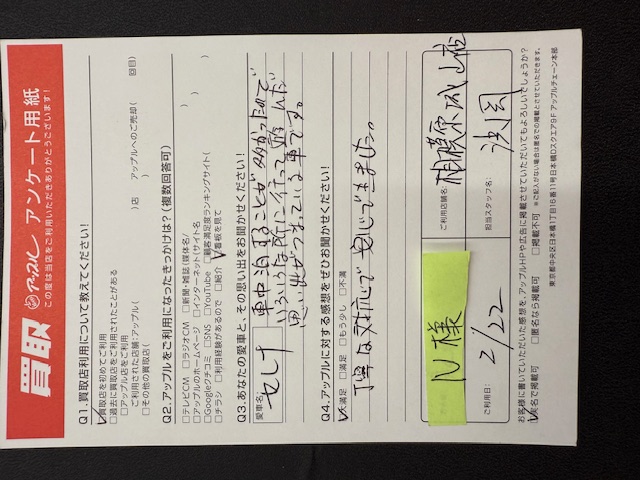 買取 アップル アンケート用紙
この度は当店をご利用いただきありがとうございます!
Q1.買取店利用について教えてください!
☑買取店を初めてご利用
□過去に買取店をご利用されたことがある
□アップル店をご利用
ご利用された店舗:アップル( )店 アップルへのご売却( 回目)
□その他の買取店( )
Q2.アップルをご利用になったきっかけは?(複数回答可)
□テレビCM □ラジオCM □新聞・雑誌(媒体名/ )
□アップルのホームページ □インターネット(サイト名 )
□Googleクチコミ □SNS □YouTube □顧客満足度ランキングサイト( )
□チラシ □利用経験があるので □紹介 ☑看板を見て
Q3.あなたの愛車と、その思い出をお聞かせください!
愛車名
セレナ 車中泊することが多かったので
いろいろな所に行って遊んだ
思い出がつまっている車です。
Q4.アップルに対する感想をぜひお聞かせください!
☑大満足 □満足 □もう少し □不満
丁寧な対応で安心できました。
N様
ご利用店舗名: 相模原城山店
ご利用日: 2/22
担当スタッフ名: 浅岡
お客様に書いていただいた感想を、アップルHPや広告に掲載させていただいてもよろしいでしょうか?
☑実名で掲載可 □匿名なら掲載可 □掲載不可 ※ご記入がない場合は匿名での掲載とさせていただきます。
東京都中央区日本橋1丁目16番11号日本橋Dスクエア9F アップルチェーン本部